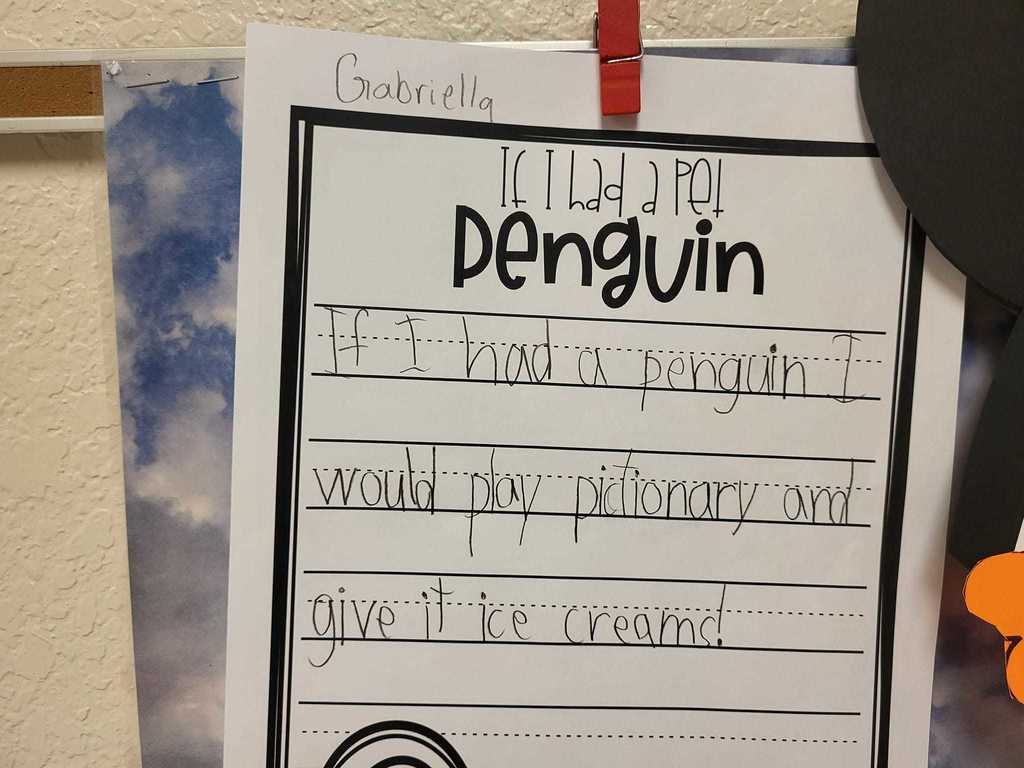 Gabriella
If I had a Pet
Penguin
If I had a penguin I
would play pictionary and
give it ice creams!